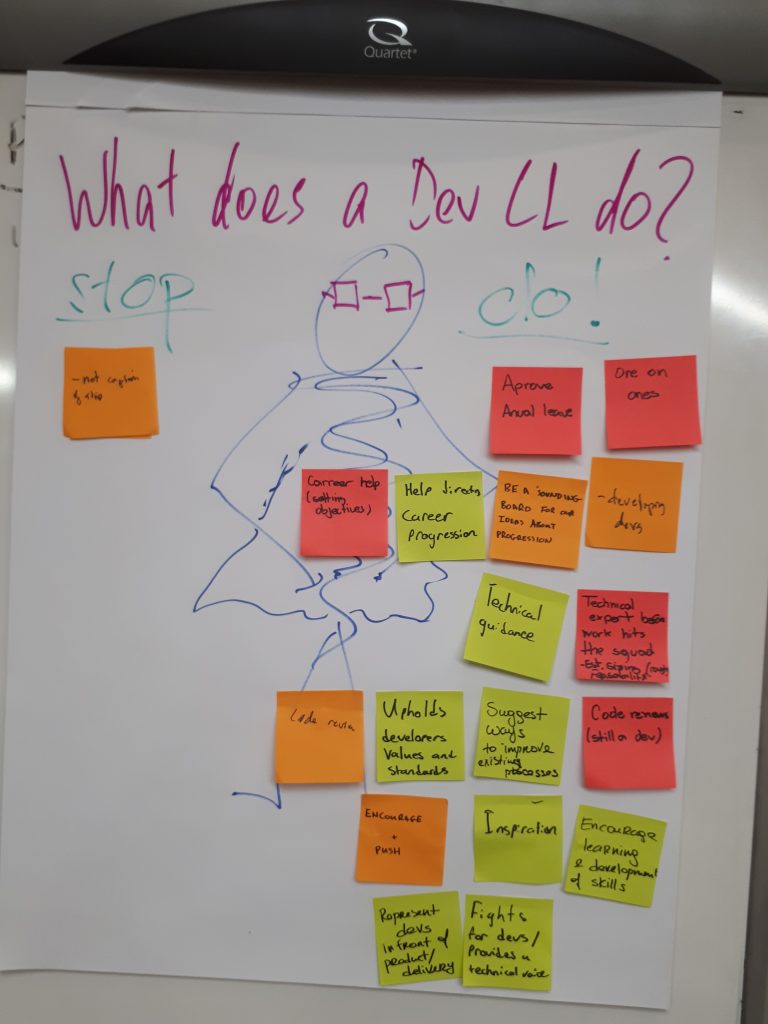 Quartet
What does a Dev CL do?
stop
do!
- not captain
of ship
Aprove
Anual leave
One on
ones
Carreer help
(setting
objectives)
Help directs
Career
Progression
BE A SOUNDING
BOARD FOR OUR
IDEAS ABOUT
PROGRESSION
- developing
devs
Technical
guidance
Technical
expert before
work hits
the squad
Code review
Upholds
developers
Values and
standards
Suggest
ways
to improve
existing
processes
Code reviews
(still a dev)
ENCOURAGE
+
PUSH
Inspiration
Encourage
learning
& development
of skills
Represent
devs
in front of
product/
delivery
Fights
for devs/
Provides a
technical voice